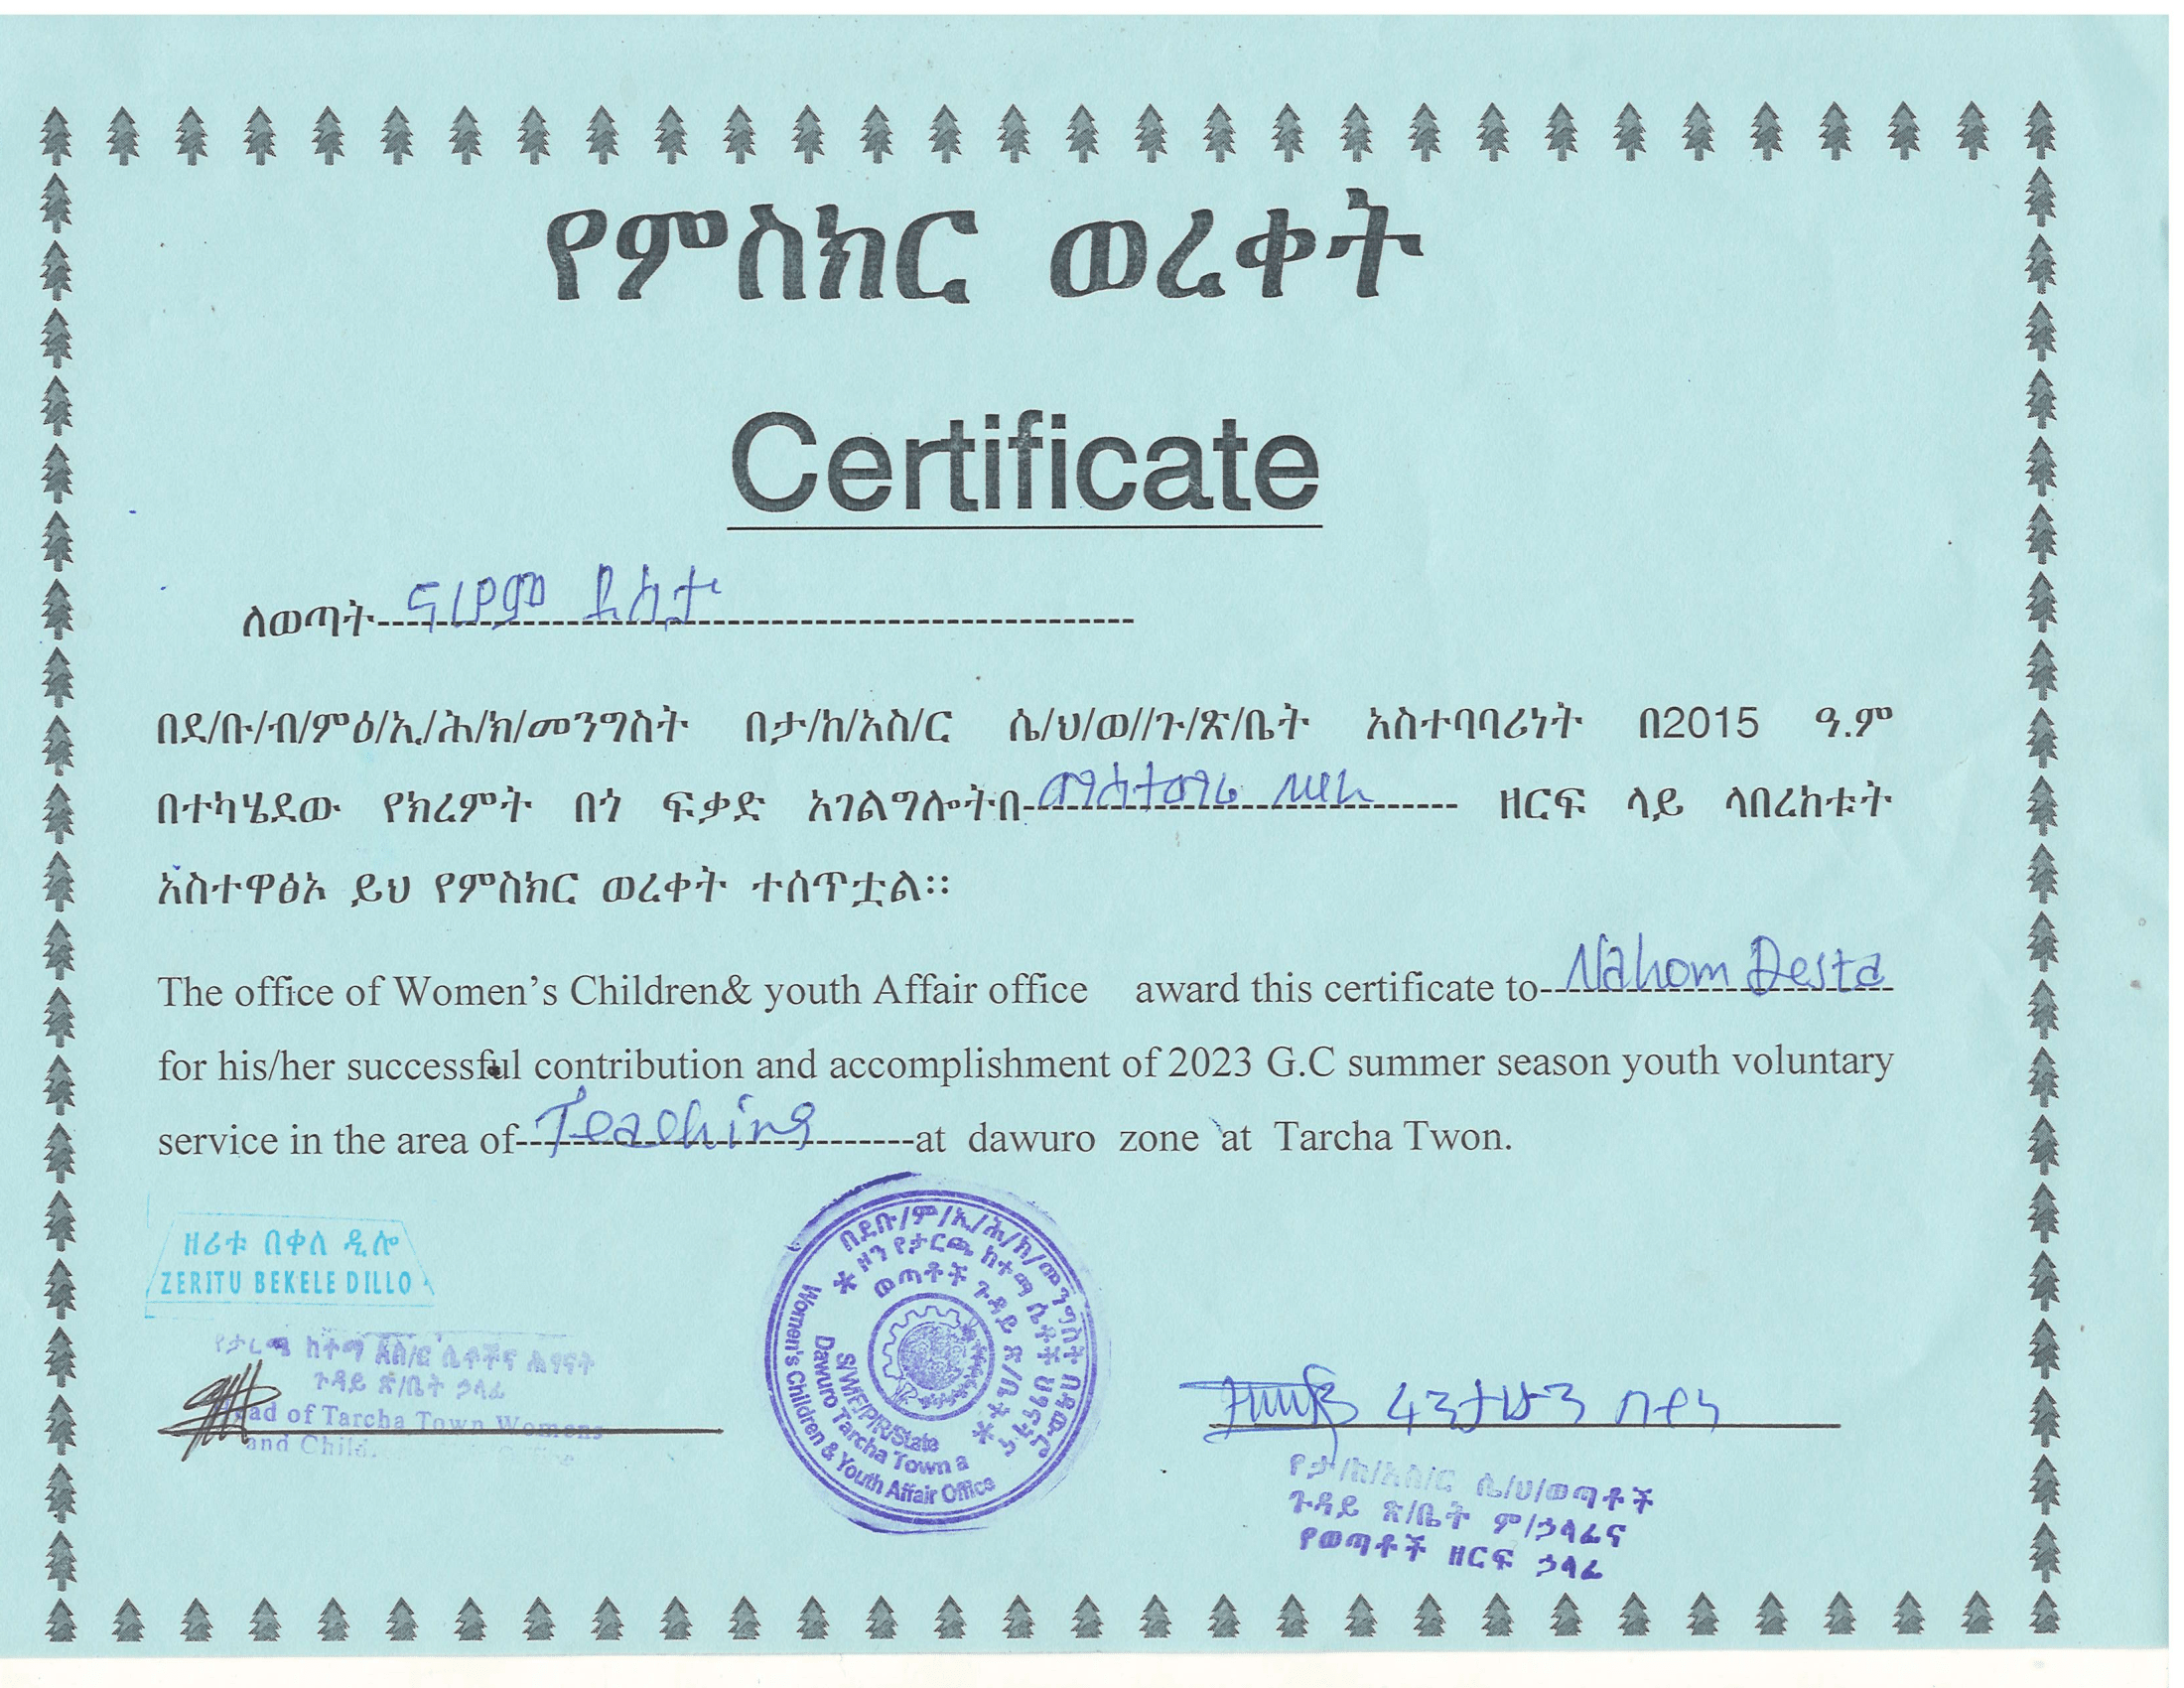 የምስክር ወረቀት
Certificate
ለወጣት ደስታ
በደ/ቡ/ብ/ምዕ/ኢ/ሕ/ክ/መንግስት በታ/ከ/አስ/ር ሴ/ህ/ወ//ጉ/ጽ/ቤት አስተባባሪነት በ2015 ዓ.ም
በተካሄደው የክረምት በጎ ፍቃድ አገልግሎትበ ማስተማር ዘርፍ ላይ ላበረከቱት
አስተዋፅኦ ይህ የምስክር ወረቀት ተሰጥቷል፡፡
The office of Women’s Children& youth Affair office award this certificate to Nahom Desta
for his/her successful contribution and accomplishment of 2023 G.C summer season youth voluntary
service in the area of Teaching at dawuro zone at Tarcha Twon.
ዘሪቱ በቀለ ዲሎ
ZERITU BEKELE DILLO
ከተማ አስ/ር ሴቶችና ሕፃናት
ጉዳይ ጽ/ቤት ኃላፊ
Head of Tarcha Town Womens
and Child
በደቡ/ም/ኢ/ሕ/ክ/መንግስት በዳውሮ
ዞን የታርጫ ከተማ ሴቶች ህፃናትና
ወጣቶች ጉዳይ ጽ/ቤት
S/W/E/P/R/State
Dawuro Tarcha Town a
Women's Children & Youth Affair Office
የታ/ከ/አስ/ር ሴ/ህ/ወጣቶች
ጉዳይ ጽ/ቤት ም/ኃላፊና
የወጣቶች ዘርፍ ኃላፊ